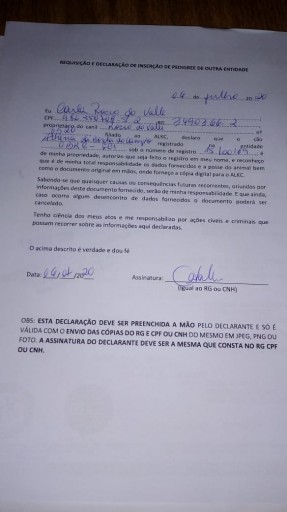 REQUISIÇÃO E DECLARAÇÃO DE INSERÇÃO DE PEDIGREE DE OUTRA ENTIDADE
de julho de 20
Eu Carla do Valle
CPF
proprietário do canil do Valle nº
filiado ao ALKC, declaro que o cão
registrado entidade
sob o número de registro é
de minha propriedade, autorizo que seja feito o registro em meu nome, e reconheço
que é de minha total responsabilidade os dados fornecidos e a posse do animal bem
como o documento original em mãos, onde forneço a cópia digital para o ALKC.
Sabendo-se que quaisquer causas ou consequências futuras recorrentes, oriundos por
informações deste documento fornecido, serão de minha responsabilidade. E que ainda,
caso ocorra algum desencontro de dados fornecidos o documento poderá ser
cancelado.
Tenho ciência dos meus atos e me responsabilizo por ações cíveis e criminais que
possam recorrer sobre as informações aqui declaradas.
O acima descrito é verdade e dou fé
Data: /2020 Assinatura:
(Igual ao RG ou CNH)
OBS: ESTA DECLARAÇÃO DEVE SER PREENCHIDA A MÃO PELO DECLARANTE E SÓ É
VÁLIDA COM O ENVIO DAS CÓPIAS DO RG E CPF OU CNH DO MESMO EM JPEG, PNG OU
FOTO. A ASSINATURA DO DECLARANTE DEVE SER A MESMA QUE CONSTA NO RG CPF
OU CNH.